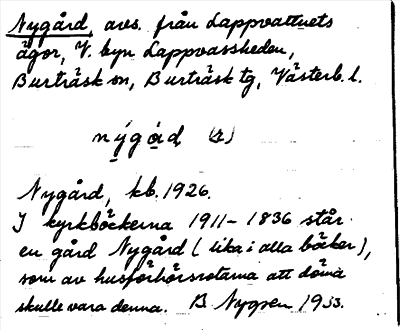 Nygård, avs. från Lappvattnets
ägor, V. byn Lappvassheden,
Burträsk sn, Burträsk tg, Västerb. l.
nýgård (r)
Nygård, kb. 1926.
I kyrkböckerna 1911-1836 står
en gård Nygård (lika i alla böcker),
som av husförhörsrotarna att döma
skulle vara denna. B Nygren 1933.